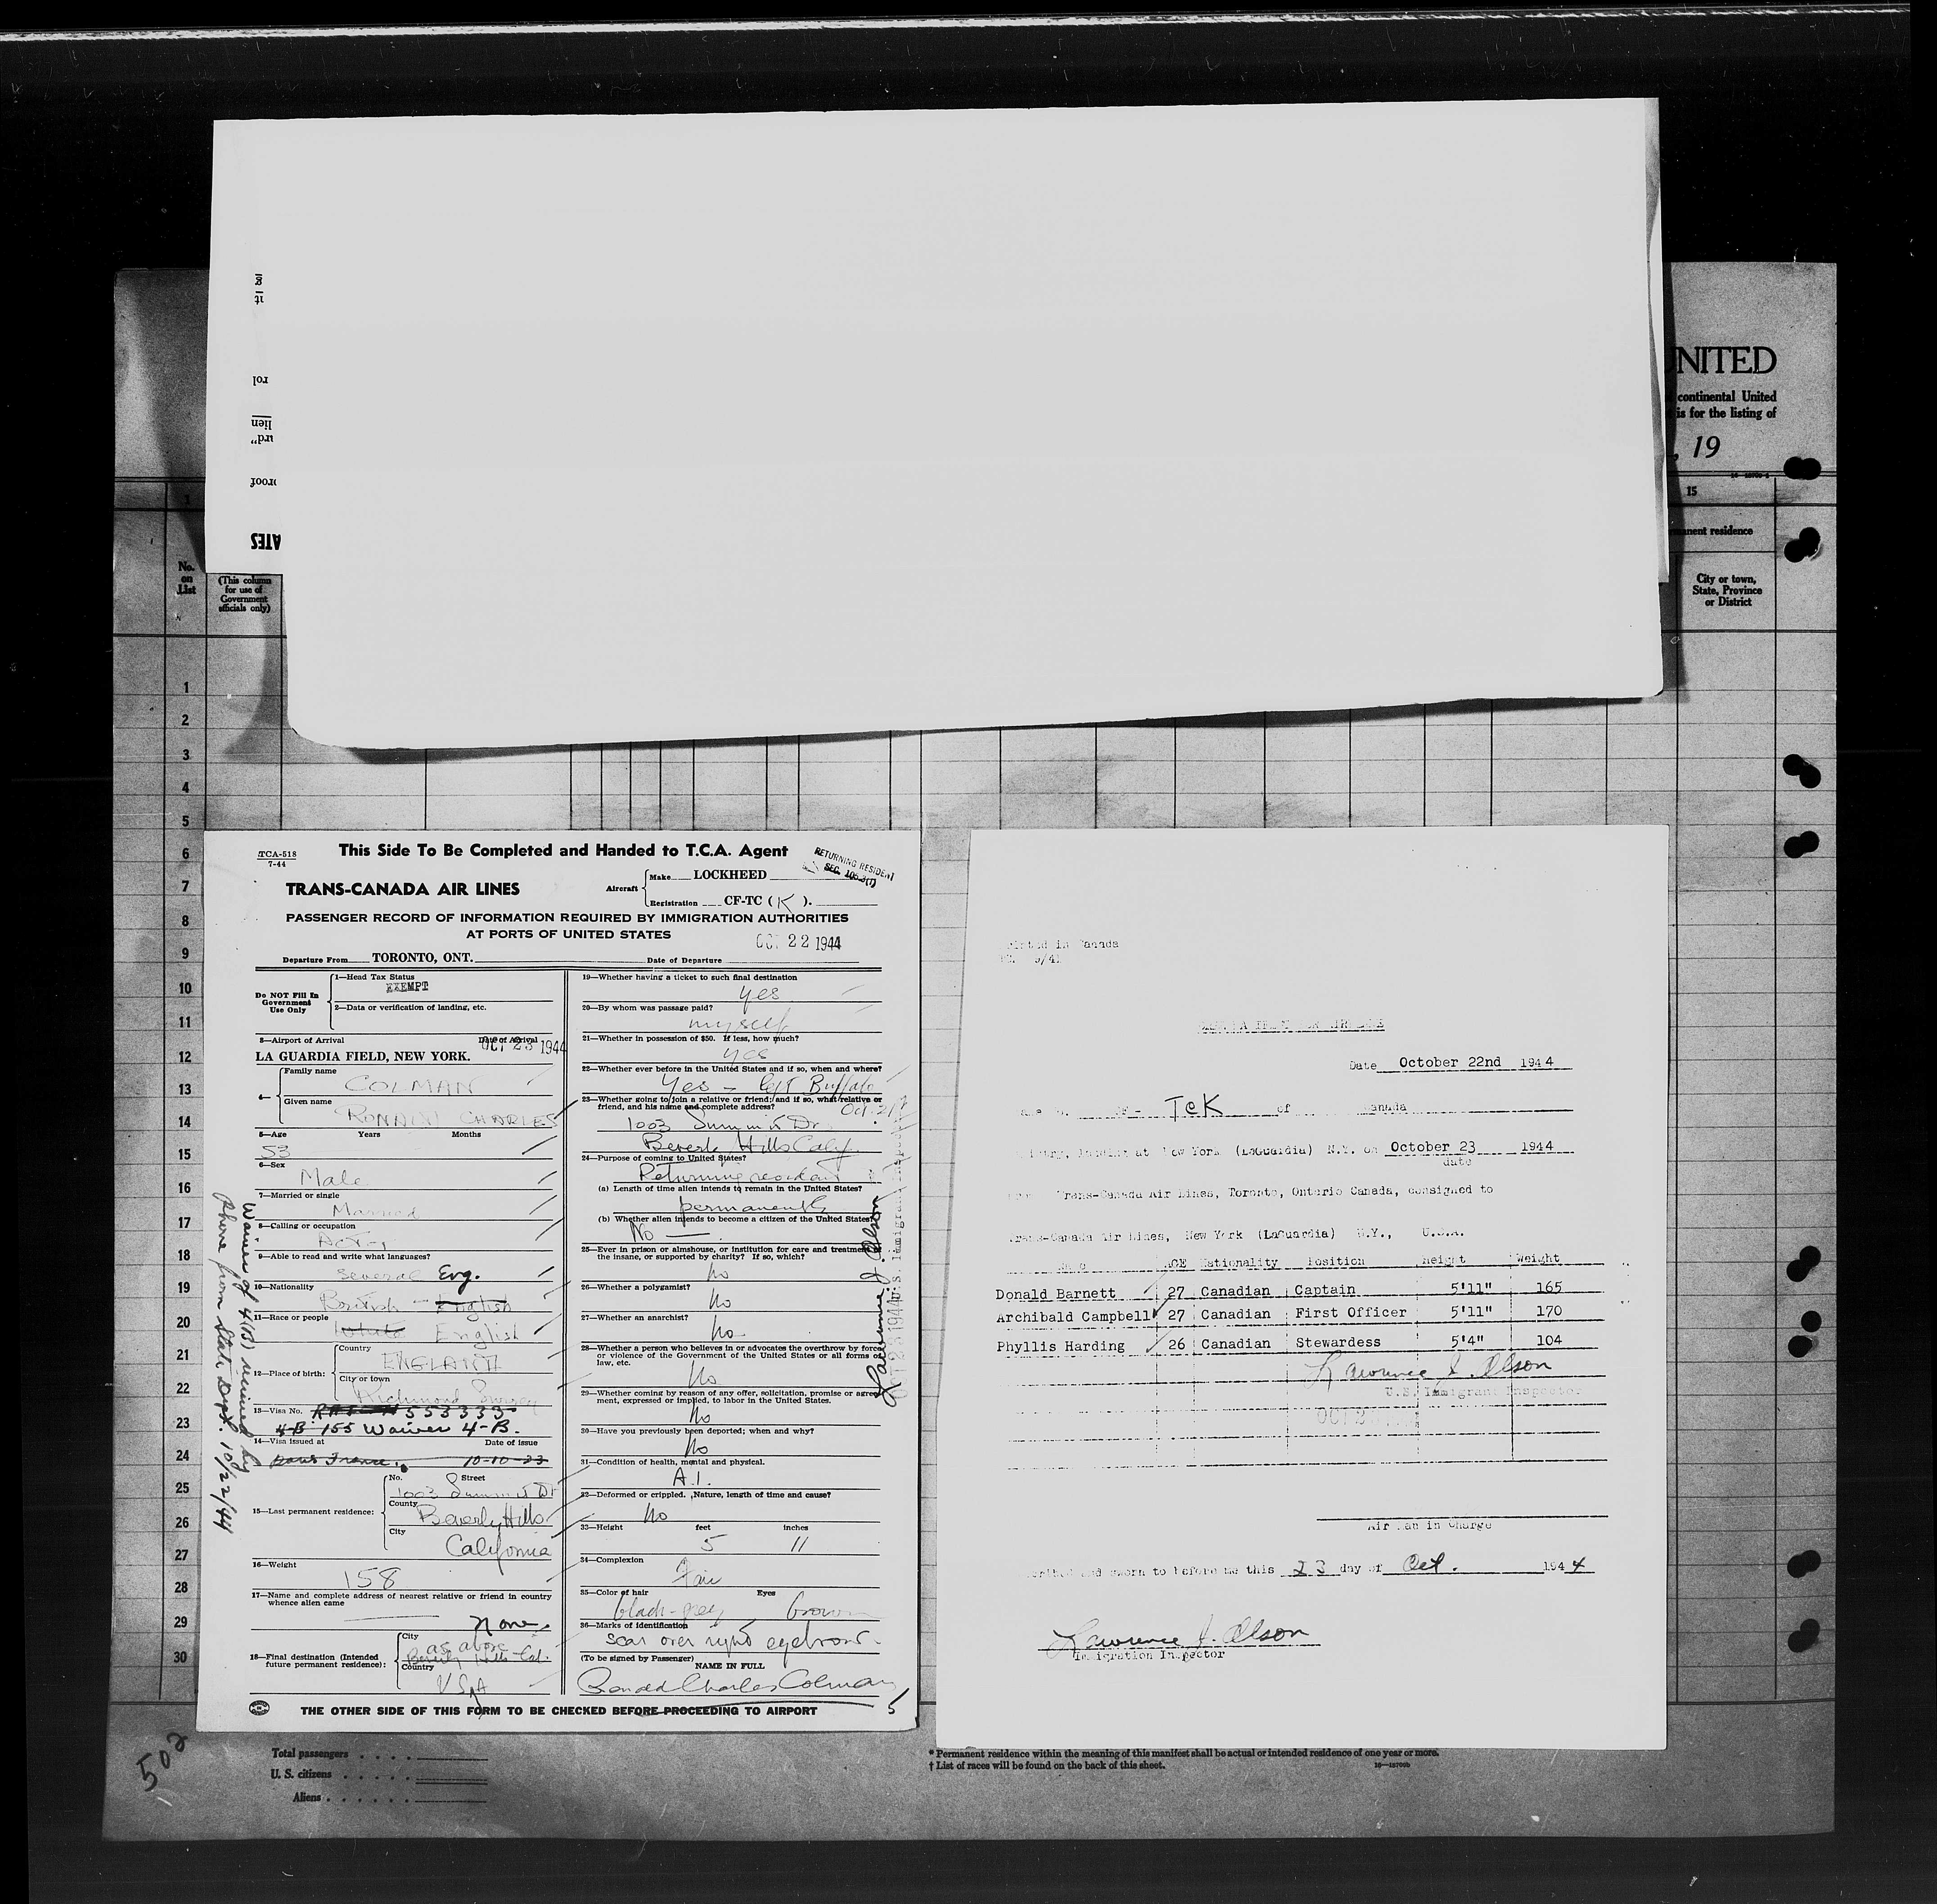 UNITED
continental United
is for the listing of
, 19
15
City or town,
State, Province
or District
No.
on
List
(This column
for use of
Government
officials only)
1
2
3
4
5
6
7
8
9
10
11
12
13
14
15
16
17
18
19
20
21
22
23
24
25
26
27
28
29
30
TCA-518
7-44
This Side To Be Completed and Handed to T.C.A. Agent
RETURNING RESIDENT
TRANS-CANADA AIR LINES
Aircraft
Make LOCKHEED
Registration CF-TC (K).
PASSENGER RECORD OF INFORMATION REQUIRED BY IMMIGRATION AUTHORITIES
AT PORTS OF UNITED STATES
OCT 22 1944
Departure From TORONTO, ONT. Date of Departure
Do NOT Fill In
Government
Use Only
1—Head Tax Status
EXEMPT
2—Data or verification of landing, etc.
3—Airport of Arrival Date of Arrival
LA GUARDIA FIELD, NEW YORK. OCT 23 1944
4— Family name
COLMAN
Given name
RONALD CHARLES
5—Age Years Months
53
6—Sex
Male
7—Married or single
Married
8—Calling or occupation
Actor
9—Able to read and write what languages?
several Eng.
10—Nationality
British - English
11—Race or people
White English
12—Place of birth:
Country
ENGLAND
City or town
Richmond Surrey
13—Visa No. 553333
4-B 155 Waiver 4-B.
14—Visa issued at Date of issue
Paris France. 10-10-33
15—Last permanent residence:
No. Street
1003 Summit Dr
County
Beverly Hills
City
California
16—Weight
158
17—Name and complete address of nearest relative or friend in country
whence alien came
none
18—Final destination (Intended
future permanent residence):
City
as above
Beverly Hills Cal.
Country
USA
19—Whether having a ticket to such final destination
yes
20—By whom was passage paid?
myself
21—Whether in possession of $50. If less, how much?
yes
22—Whether ever before in the United States and if so, when and where?
Yes - left Buffalo
23—Whether going to join a relative or friend; and if so, what relative or
friend, and his name and complete address?
1003 Summit Dr
Beverly Hills Calif.
24—Purpose of coming to United States?
Returning resident
(a) Length of time alien intends to remain in the United States?
permanently
(b) Whether alien intends to become a citizen of the United States?
No
25—Ever in prison or almshouse, or institution for care and treatment of
the insane, or supported by charity? If so, which?
No
26—Whether a polygamist?
No
27—Whether an anarchist?
No
28—Whether a person who believes in or advocates the overthrow by force
or violence of the Government of the United States or all forms of
law, etc.
No
29—Whether coming by reason of any offer, solicitation, promise or agree-
ment, expressed or implied, to labor in the United States.
No
30—Have you previously been deported; when and why?
No
31—Condition of health, mental and physical.
A.1.
32—Deformed or crippled. Nature, length of time and cause?
No
33—Height feet inches
5 11
34—Complexion
Fair
35—Color of hair Eyes
black-grey brown
36—Marks of identification
scar over right eyebrow.
(To be signed by Passenger)
NAME IN FULL
Ronald Charles Colman
5
THE OTHER SIDE OF THIS FORM TO BE CHECKED BEFORE PROCEEDING TO AIRPORT
Waiver of 4(B) received by
phone from State Dept. 10/22/44
Lawrence J. Olson
U.S. Immigrant Inspector
502
Total passengers
U. S. citizens
Aliens
Printed in Canada
Date October 22nd 1944
CF- TCK of Canada
New York (LaGuardia) N.Y. on October 23 1944
date
Trans-Canada Air Lines, Toronto, Ontario Canada, consigned to
Trans-Canada Air Lines, New York (LaGuardia) N.Y., U.S.A.
Name AGE Nationality Position Height Weight
Donald Barnett 27 Canadian Captain 5'11" 165
Archibald Campbell 27 Canadian First Officer 5'11" 170
Phyllis Harding 26 Canadian Stewardess 5'4" 104
Lawrence J. Olson
U.S. Immigrant Inspector
Air Man in Charge
and sworn to before me this 23 day of Oct. 1944
Lawrence J. Olson
Immigration Inspector
* Permanent residence within the meaning of this manifest shall be actual or intended residence of one year or more.
† List of races will be found on the back of this sheet.